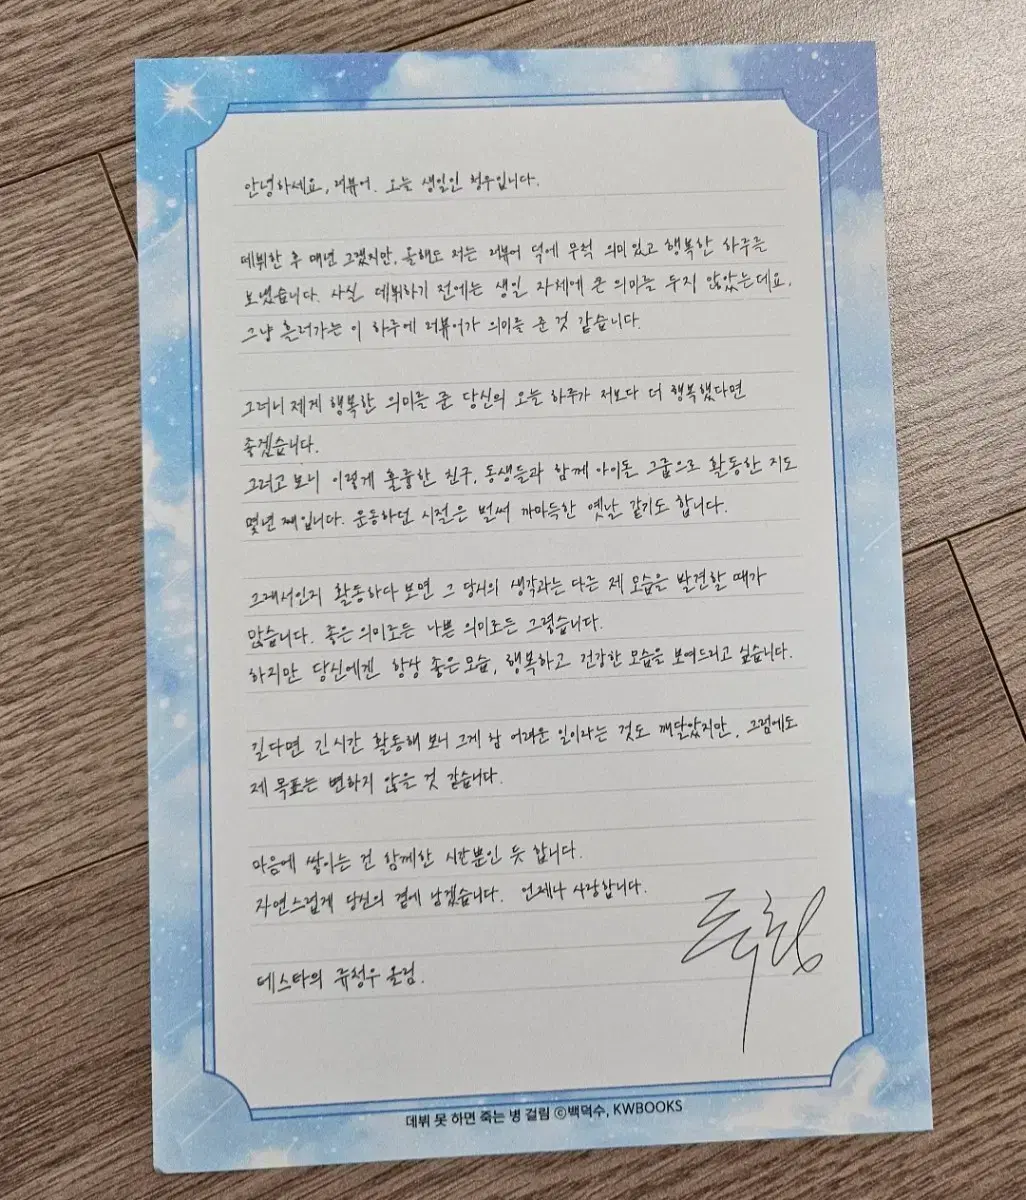 안녕하세요, 러뷰어. 오늘 생일인 청우입니다.
데뷔한 후 매년 그랬지만, 올해도 저는 러뷰어 덕에 무척 의미있고 행복한 하루를
보냈습니다. 사실 데뷔하기 전에는 생일 자체에 큰 의미를 두지 않았는데요.
그냥 흘러가는 이 하루에 러뷰어가 의미를 준 것 같습니다.
그러니 제게 행복한 의미를 준 당신의 오늘 하루가 저보다 더 행복했다면
좋겠습니다.
그러고 보니 이렇게 훌륭한 친구, 동생들과 함께 아이돌 그룹으로 활동한 지도
몇년 째입니다. 운동하던 시절은 벌써 까마득한 옛날 같기도 합니다.
그래서인지 활동하다 보면 그 당시의 생각과는 다른 제 모습을 발견할 때가
많습니다. 좋은 의미로든 나쁜 의미로든 그렇습니다.
하지만 당신에겐 항상 좋은 모습, 행복하고 건강한 모습을 보여드리고 싶습니다.
길다면 긴 시간 활동해 보니 그게 참 어려운 일이라는 것도 깨달았지만, 그럼에도
제 목표는 변하지 않을 것 같습니다.
마음에 쌓이는 건 함께한 시간뿐인 듯 합니다.
자연스럽게 당신의 곁에 남겠습니다. 언제나 사랑합니다.
테스타의 류청우 올림.
데뷔 못 하면 죽는 병 걸림 ⓒ백덕수, KWBOOKS